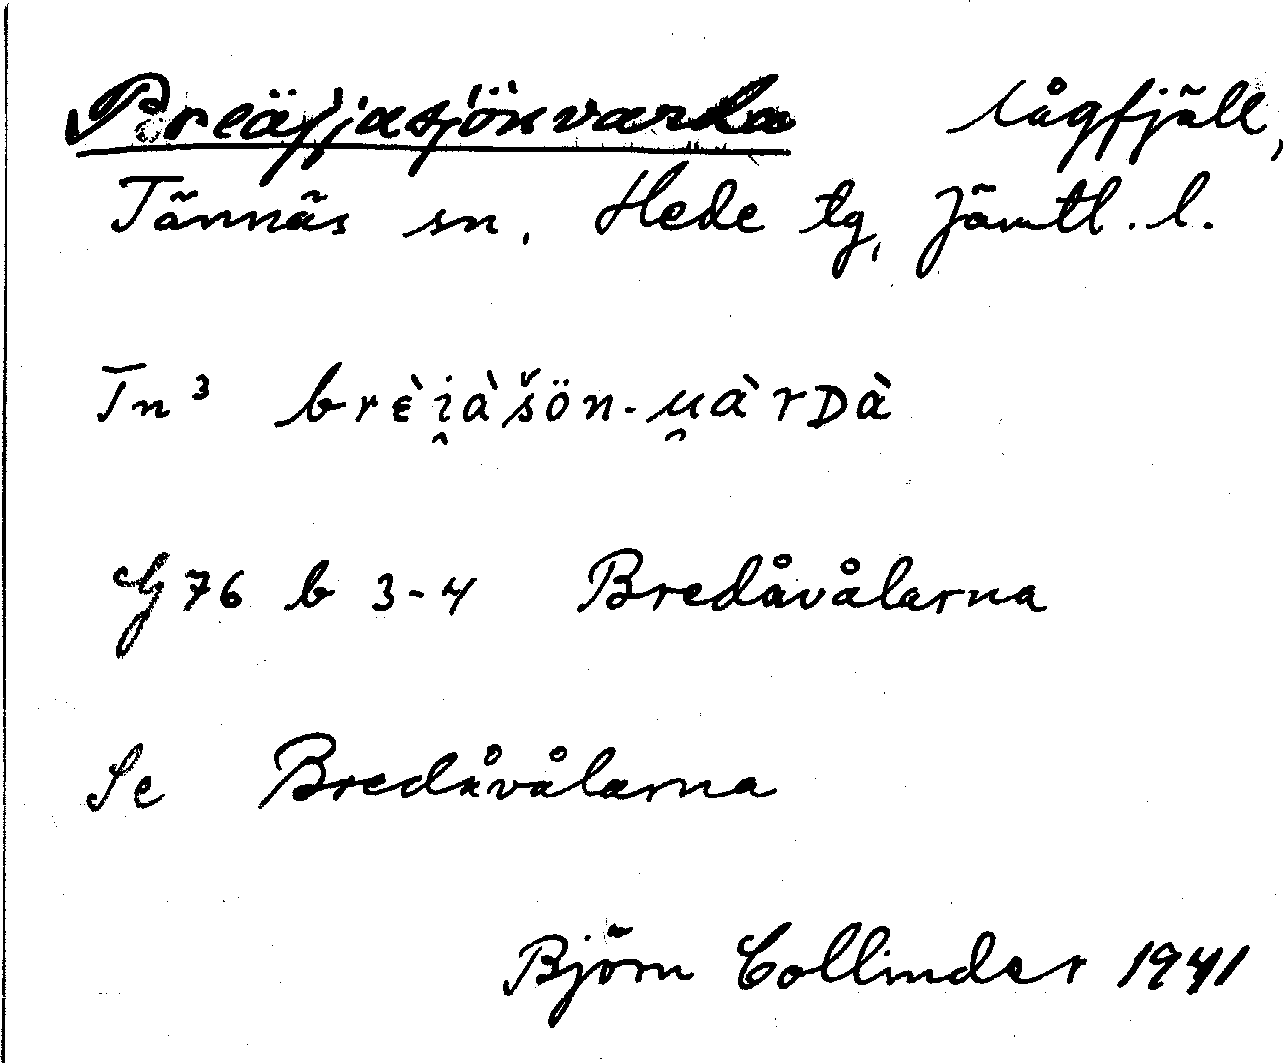 Preäjjasjönvarda lågfjäll,
Tännäs sn, Hede tg, Jämtl. l.
Tn³ brɛ̀i̯àšön-u̯àrDà
G 76 b 3-4 Bredåvålarna
Se Bredåvålarna
Björn Collinder 1941